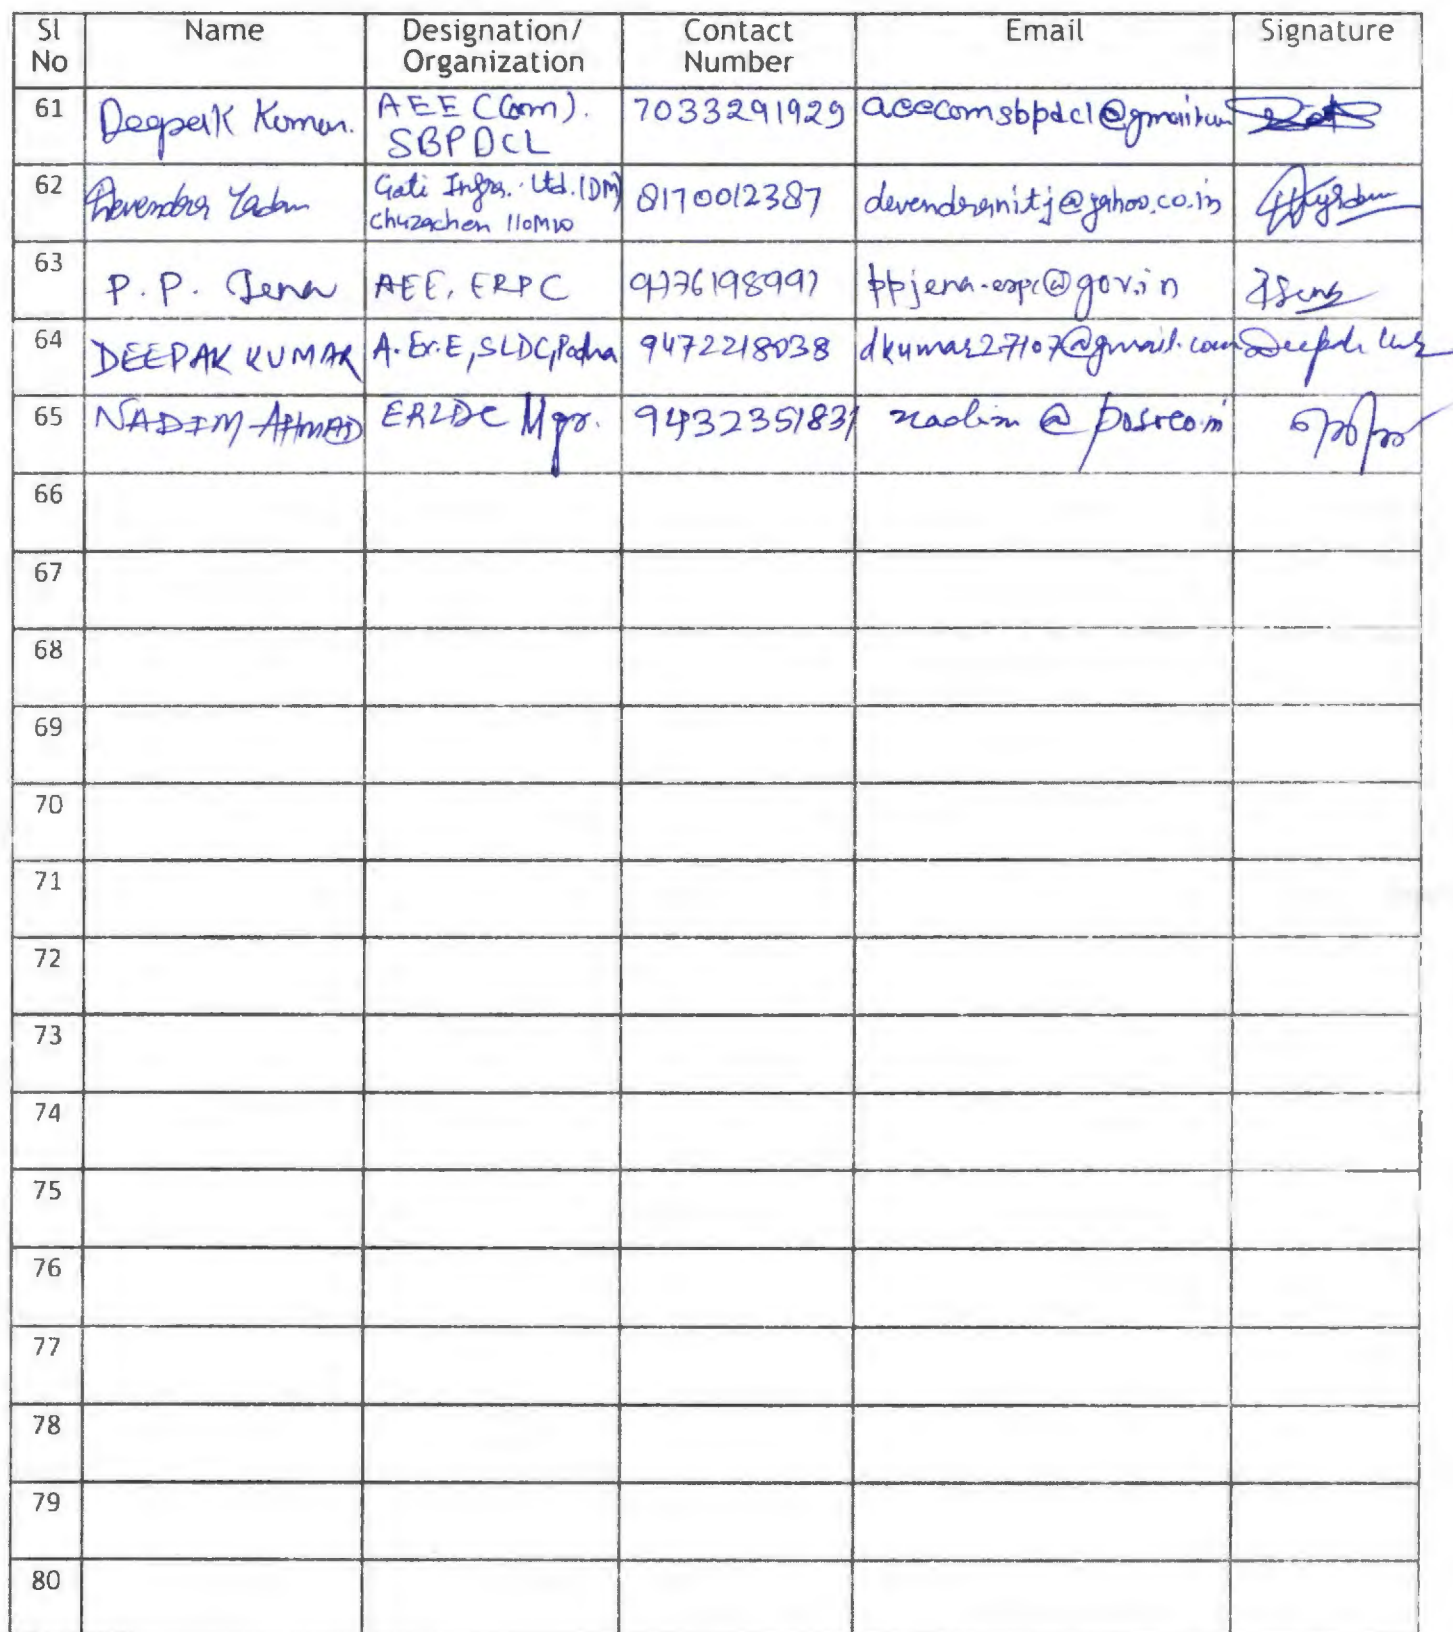 Sl No Name Designation/ Organization Contact Number Email Signature
61 Deepak Kumar. AEE (Com). SBPDCL 7033291929 aeecomsbpdcl@gmail.com
62 Devendra Yadav Gati Infra. Ltd. (DM) Chuzachen 110MW 8170012387 devendranitj@yahoo.co.in
63 P.P. Jena AEE, ERPC ppjena.erpc@gov.in
64 DEEPAK KUMAR A.Ex.E, SLDC, Patna 9472218038 dkumar27107@gmail.com
65 NADIM AHMAD ERLDC Mgr. 9432351831 nadim@posoco.in
66
67
68
69
70
71
72
73
74
75
76
77
78
79
80